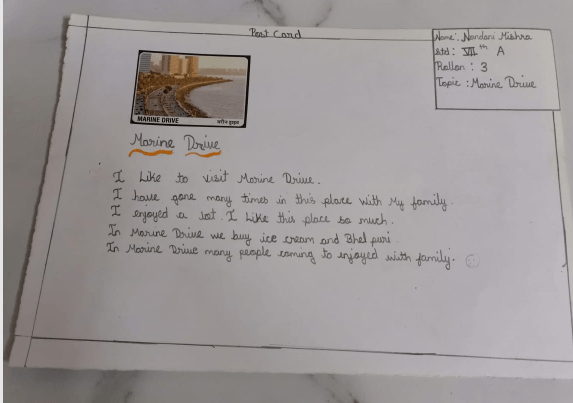 Post Card
Name: Nandani Mishra
std: VII th A
Rollon : 3
Topic : Marine Drive
MARINE DRIVE मरीन ड्राइव
Marine Drive
I Like to visit Marine Drive.
I have gone many times in this place with My family.
I enjoyed a lot. I Like this place so much.
In Marine Drive we buy ice cream and Bhel puri.
In Marine Drive many people coming to enjoyed with family.